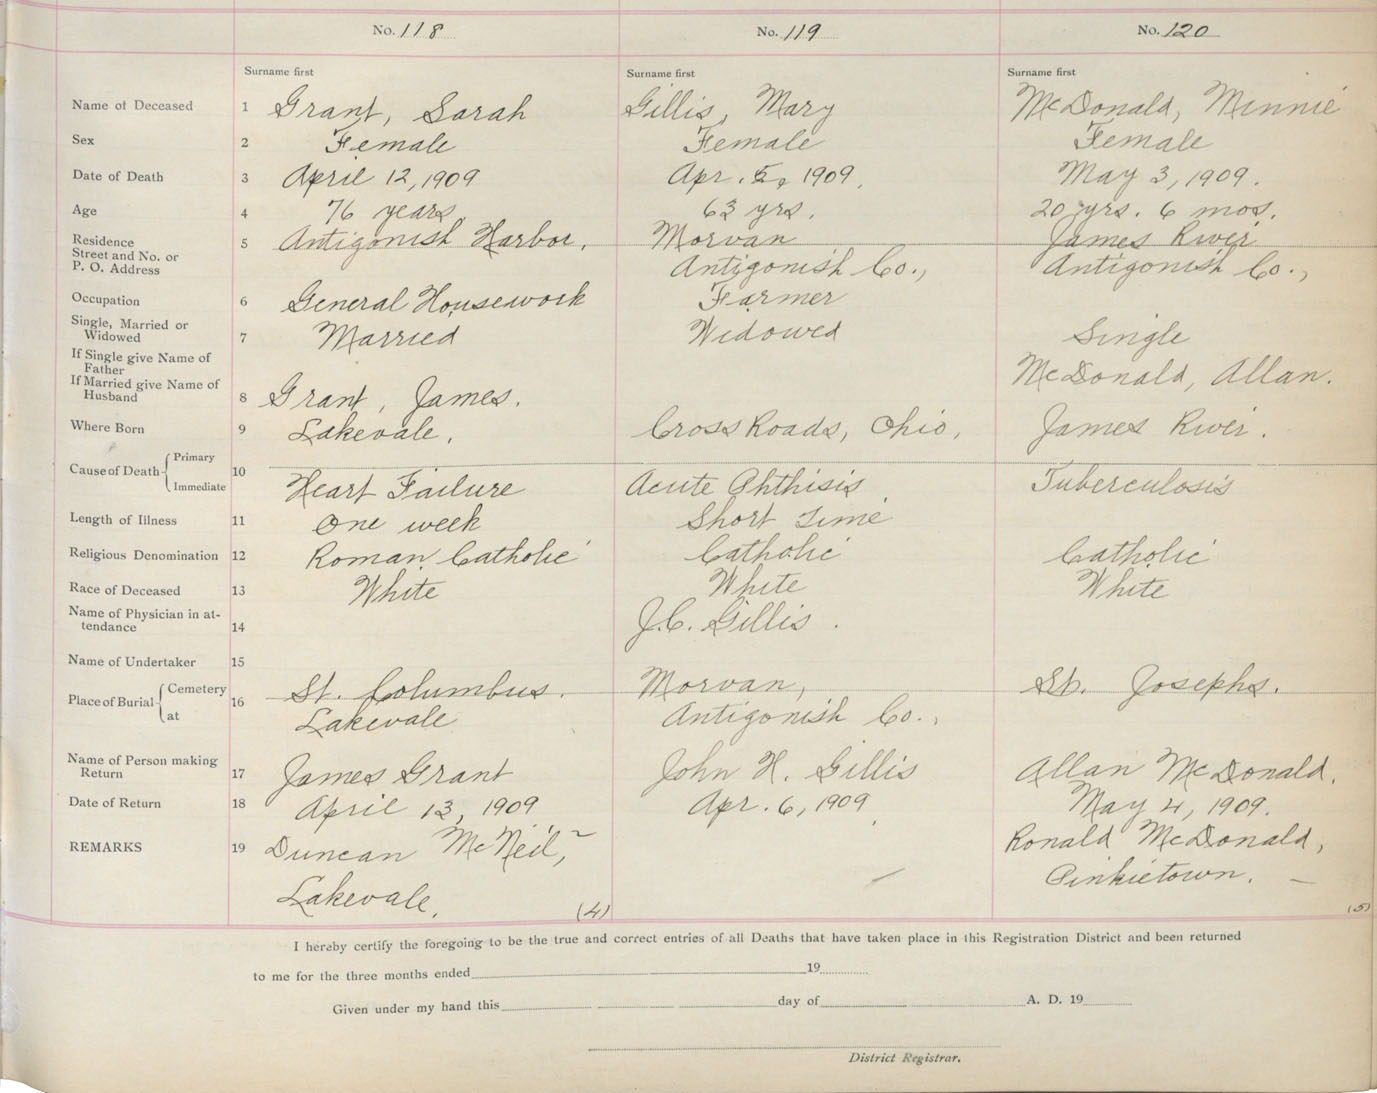 No. 118 No. 119 No. 120
Surname first Surname first Surname first
Name of Deceased 1 Grant, Sarah Gillis, Mary McDonald, Minnie
Sex 2 Female Female Female
Date of Death 3 April 12, 1909 Apr. 5, 1909. May 3, 1909.
Age 4 76 years. 63 yrs. 20 yrs. 6 mos.
Residence 5 Antigonish Harbor. Morvan James River
Street and No. or
P. O. Address Antigonish Co., Antigonish Co.,
Occupation 6 General Housework Farmer
Single, Married or
Widowed 7 Married Widowed Single
If Single give Name of
Father McDonald, Allan.
If Married give Name of
Husband 8 Grant, James.
Where Born 9 Lakevale. Cross Roads, Ohio, James River.
Cause of Death { Primary
Immediate 10 Heart Failure Acute Phthisis Tuberculosis
Length of Illness 11 One week Short Time
Religious Denomination 12 Roman Catholic Catholic Catholic
Race of Deceased 13 White White White
Name of Physician in at-
tendance 14 J.C. Gillis.
Name of Undertaker 15
Place of Burial { Cemetery 16 St. Columbus. Morvan, St. Josephs.
at Lakevale Antigonish Co.,
Name of Person making
Return 17 James Grant John H. Gillis Allan McDonald.
Date of Return 18 April 13, 1909 Apr. 6, 1909 May 4, 1909.
REMARKS 19 Duncan McNeil, Ronald McDonald,
Lakevale. Pinkietown. —
(4) (5)
I hereby certify the foregoing to be the true and correct entries of all Deaths that have taken place in this Registration District and been returned
to me for the three months ended 19
Given under my hand this day of A. D. 19
District Registrar.